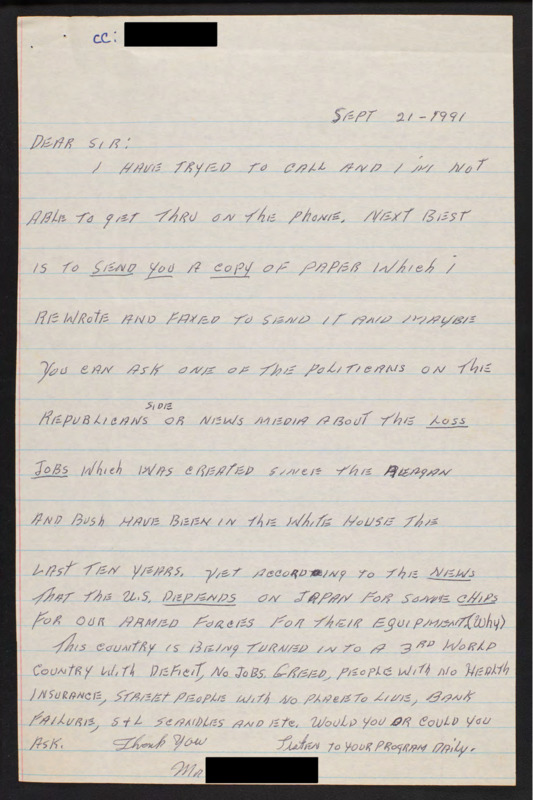 cc:
SEPT 21-1991
DEAR SIR:
I HAVE TRYED TO CALL AND I'M NOT
ABLE TO GET THRU ON THE PHONE. NEXT BEST
IS TO SEND YOU A COPY OF PAPER WHICH I
REWROTE AND FAXED TO SEND IT AND MAYBE
YOU CAN ASK ONE OF THE POLITICANS ON THE
REPUBLICANS SIDE OR NEWS MEDIA ABOUT THE LOSS
JOBS WHICH WAS CREATED SINCE THE REAGAN
AND BUSH HAVE BEEN IN THE WHITE HOUSE THE
LAST TEN YEARS. YET ACCORDING TO THE NEWS
THAT THE U.S. DEPENDS ON JAPAN FOR SOME CHIPS
FOR OUR ARMED FORCES FOR THEIR EQUIPMENT.(WHY)
THIS COUNTRY IS BEING TURNED IN TO A 3RD WORLD
COUNTRY WITH DEFICIT, NO JOBS. GREED, PEOPLE WITH NO HEALTH
INSURANCE, STREET PEOPLE WITH NO PLACE TO LIVE, BANK
FAILURE, S+L SCANDLES AND ETC. WOULD YOU OR COULD YOU
ASK. Thank You Listen TO YOUR PROGRAM DAILY.